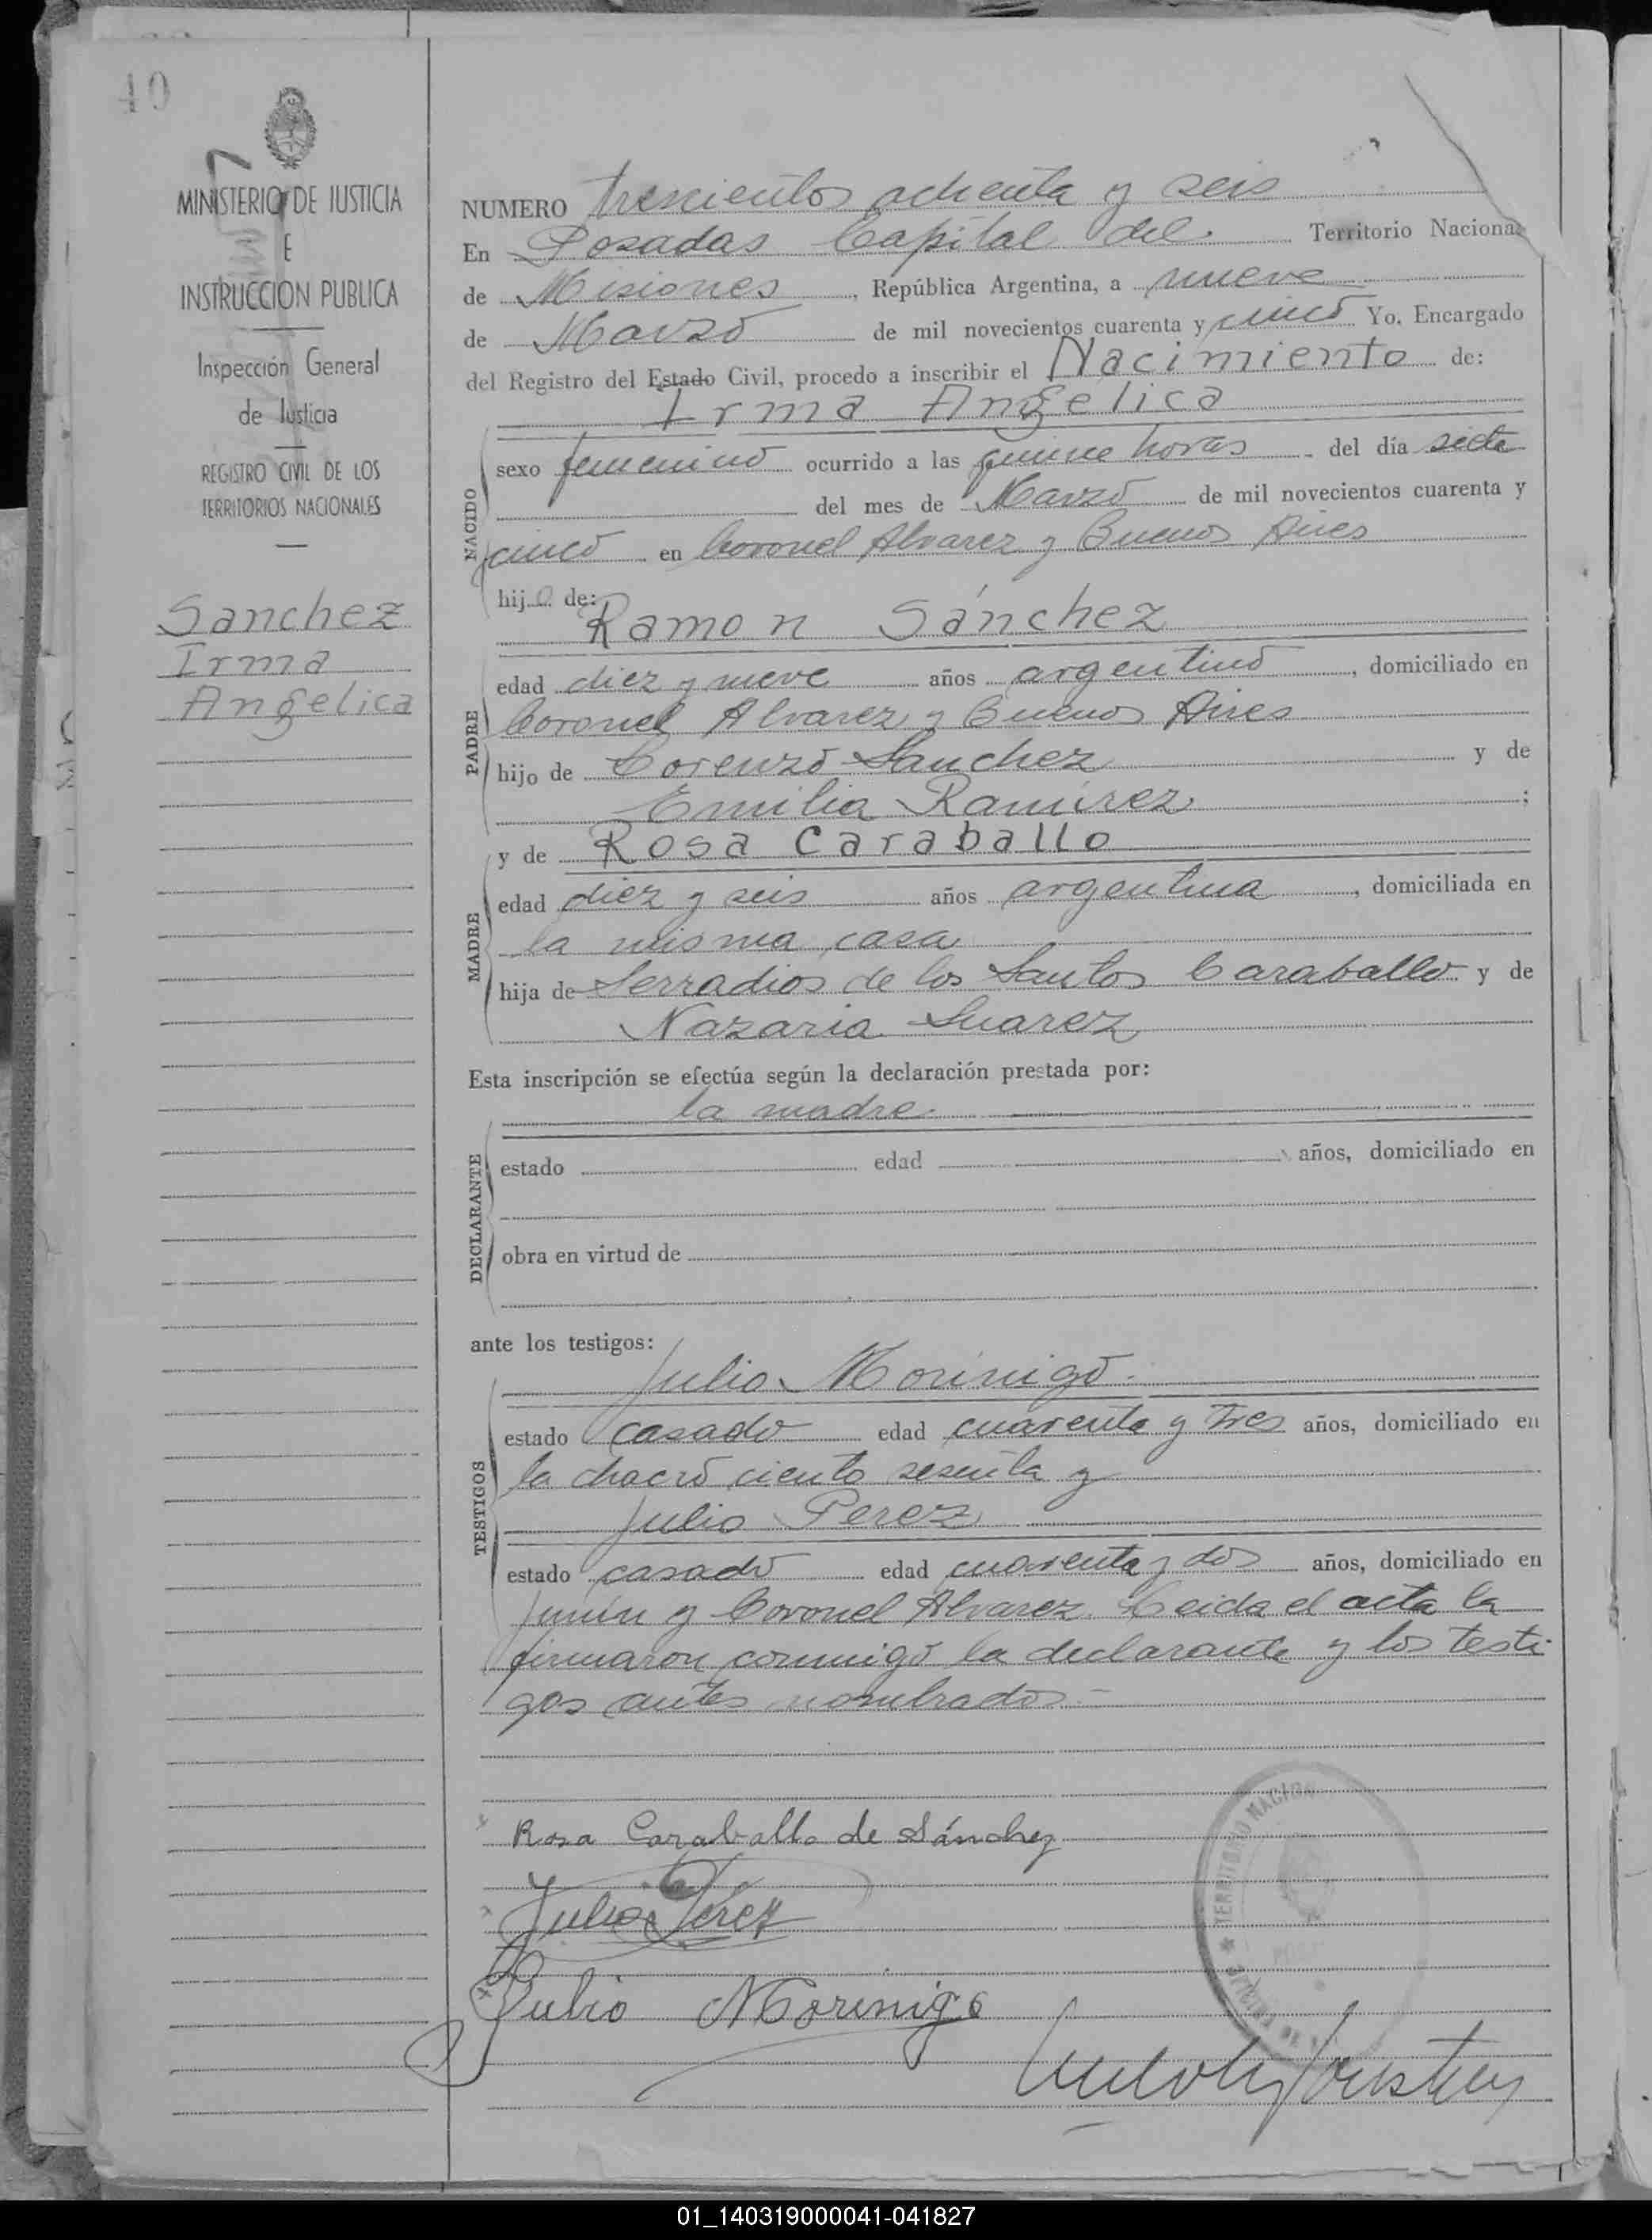 40
MINISTERIO DE JUSTICIA
E
INSTRUCCION PUBLICA
Inspección General
de Justicia
REGISTRO CIVIL DE LOS
TERRITORIOS NACIONALES
Sanchez
Irma
Angelica
NUMERO trescientos ochenta y seis
En Posadas Capital del Territorio Nacional
de Misiones, República Argentina, a nueve
de Marzo de mil novecientos cuarenta y cinco Yo, Encargado
del Registro del Estado Civil, procedo a inscribir el Nacimiento de:
Irma Angelica
NACIDO
sexo femenino ocurrido a las quince horas del día siete
del mes de Marzo de mil novecientos cuarenta y
cinco en Coronel Alvarez y Buenos Aires
hija de:
Ramon Sánchez
PADRE
edad diez y nueve años argentino, domiciliado en
Coronel Alvarez y Buenos Aires
hijo de Lorenzo Sanchez y de
Emilia Ramirez;
y de Rosa Caraballo
MADRE
edad diez y seis años argentina, domiciliada en
la misma casa
hija de de los Santos Caraballo y de
Nazaria Suarez
Esta inscripción se efectúa según la declaración prestada por:
la madre
DECLARANTE
estado edad años, domiciliado en
obra en virtud de
ante los testigos:
Julio Morinigo
TESTIGOS
estado casado edad cuarenta y tres años, domiciliado en
la chacra ciento sesenta y
Julio Perez
estado casado edad cuarenta y dos años, domiciliado en
Junin y Coronel Alvarez. Leida el acta la
firmaron conmigo la declarante y los testi-
gos antes nombrados.-
Rosa Caraballo de Sánchez
Julio Pérez
Julio Morinigo
TERRITORIO NACIONAL
01_140319000041-041827